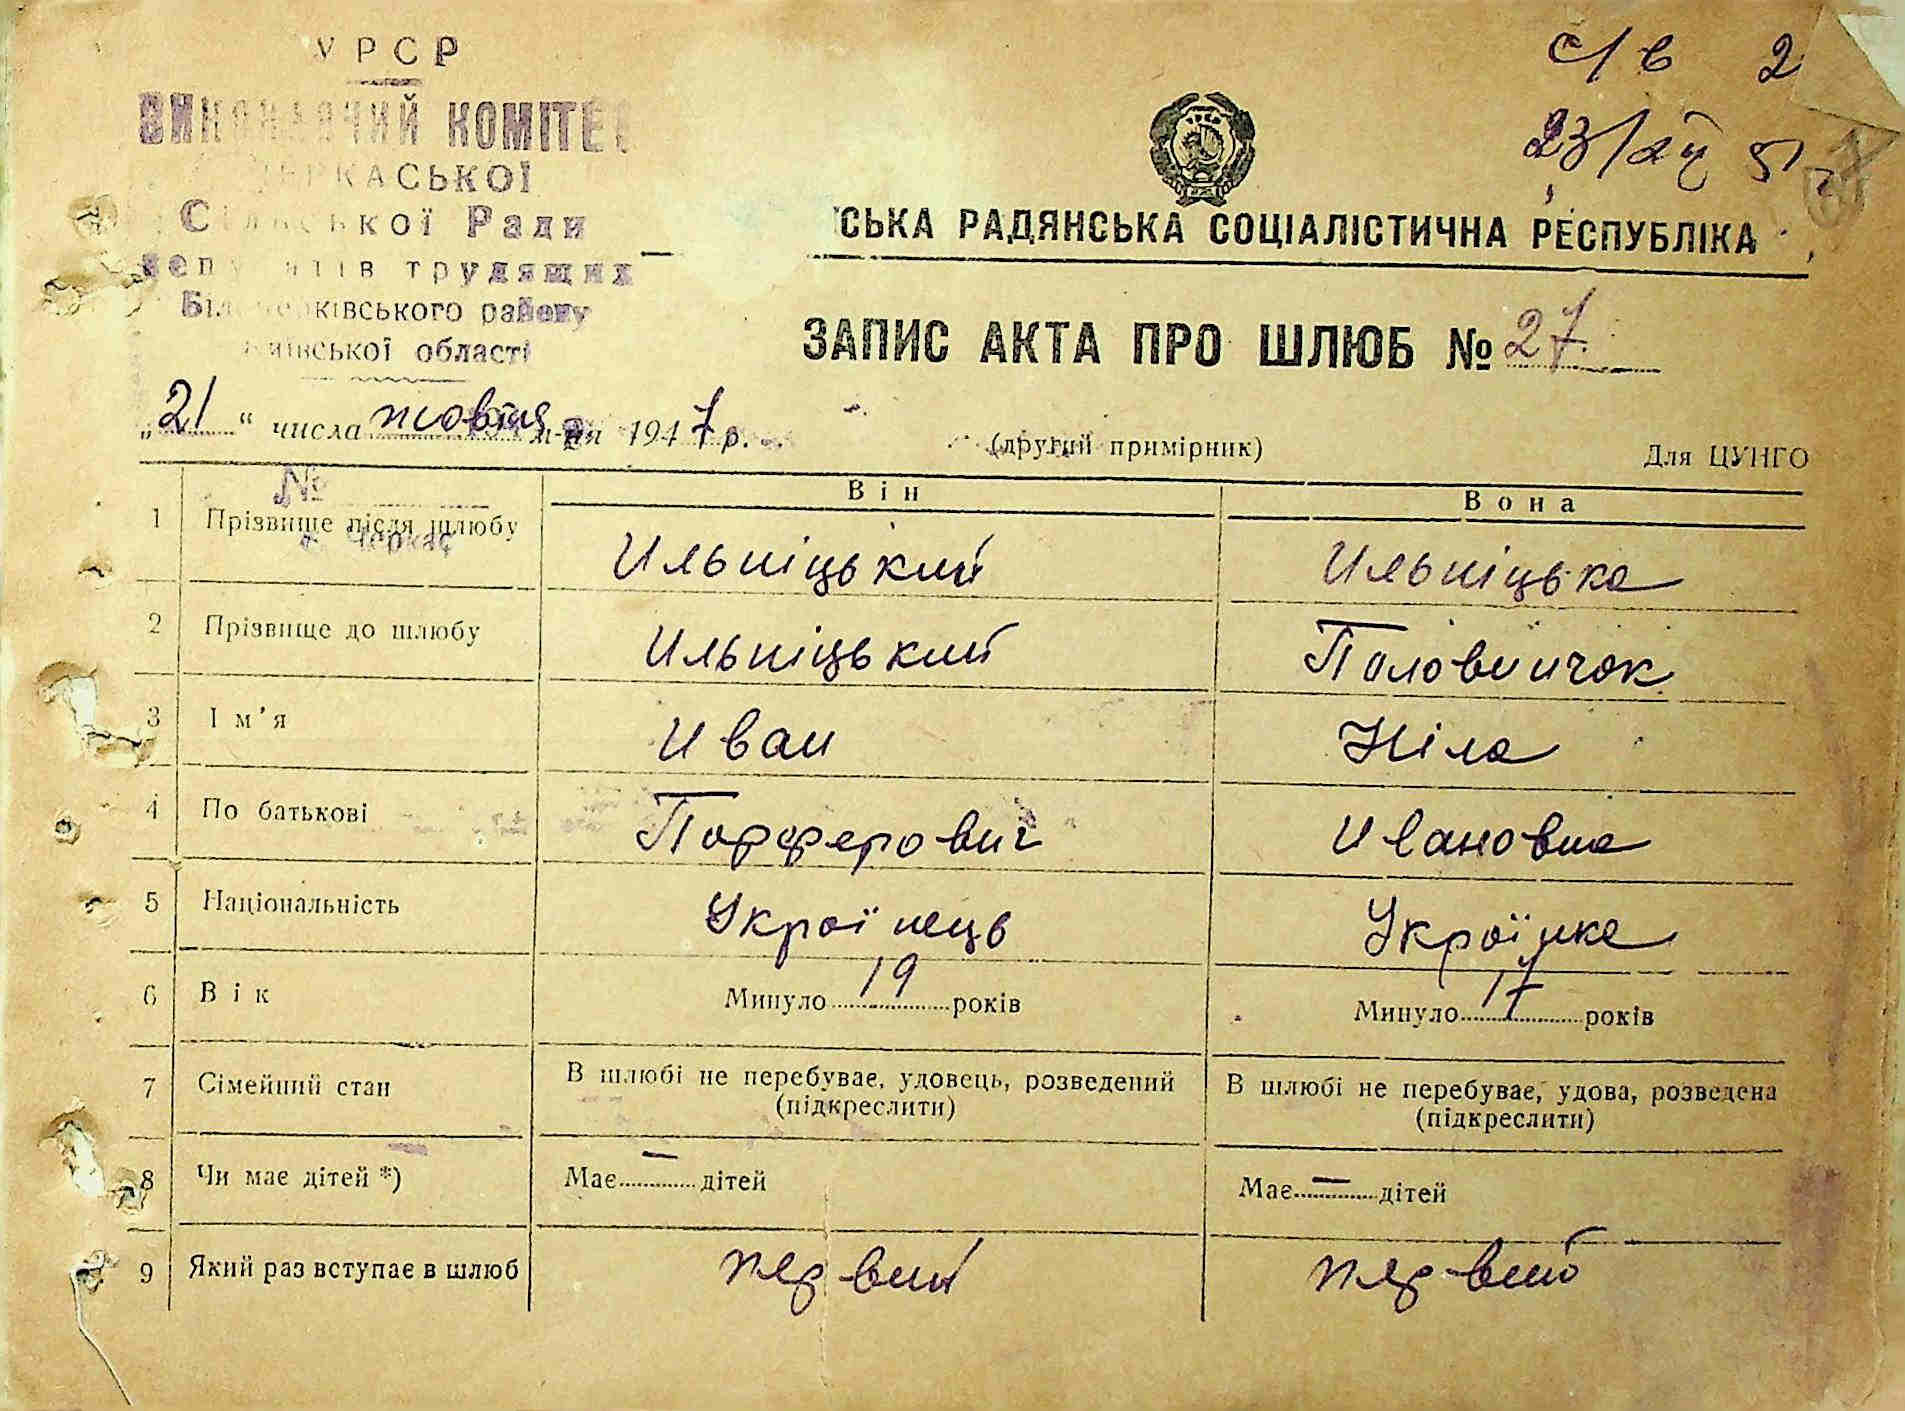 УРСР
ВИКОНАВЧИЙ КОМІТЕТ
ЧЕРКАСЬКОЇ
Сільської Ради
депутатів трудящих
Білоцерківського району
Київської області
с/в 2
23/XII 51
СЬКА РАДЯНСЬКА СОЦІАЛІСТИЧНА РЕСПУБЛІКА
ЗАПИС АКТА ПРО ШЛЮБ № 27
„21“ числа жовтня м-ця 1947 р.
(другий примірник)
Для ЦУНГО
№
Він Вона
1 Прізвище після шлюбу Ильніцький Ильніцька
с. Черкас
2 Прізвище до шлюбу Ильніцький Половинчок
3 Ім'я Иван Ніла
4 По батькові Порферович Ивановна
5 Національність Українець Українка
6 Вік Минуло 19 років Минуло 17 років
7 Сімейний стан В шлюбі не перебуває, удовець, розведений (підкреслити) В шлюбі не перебуває, удова, розведена (підкреслити)
8 Чи має дітей *) Має — дітей Має — дітей
9 Який раз вступає в шлюб первий первий